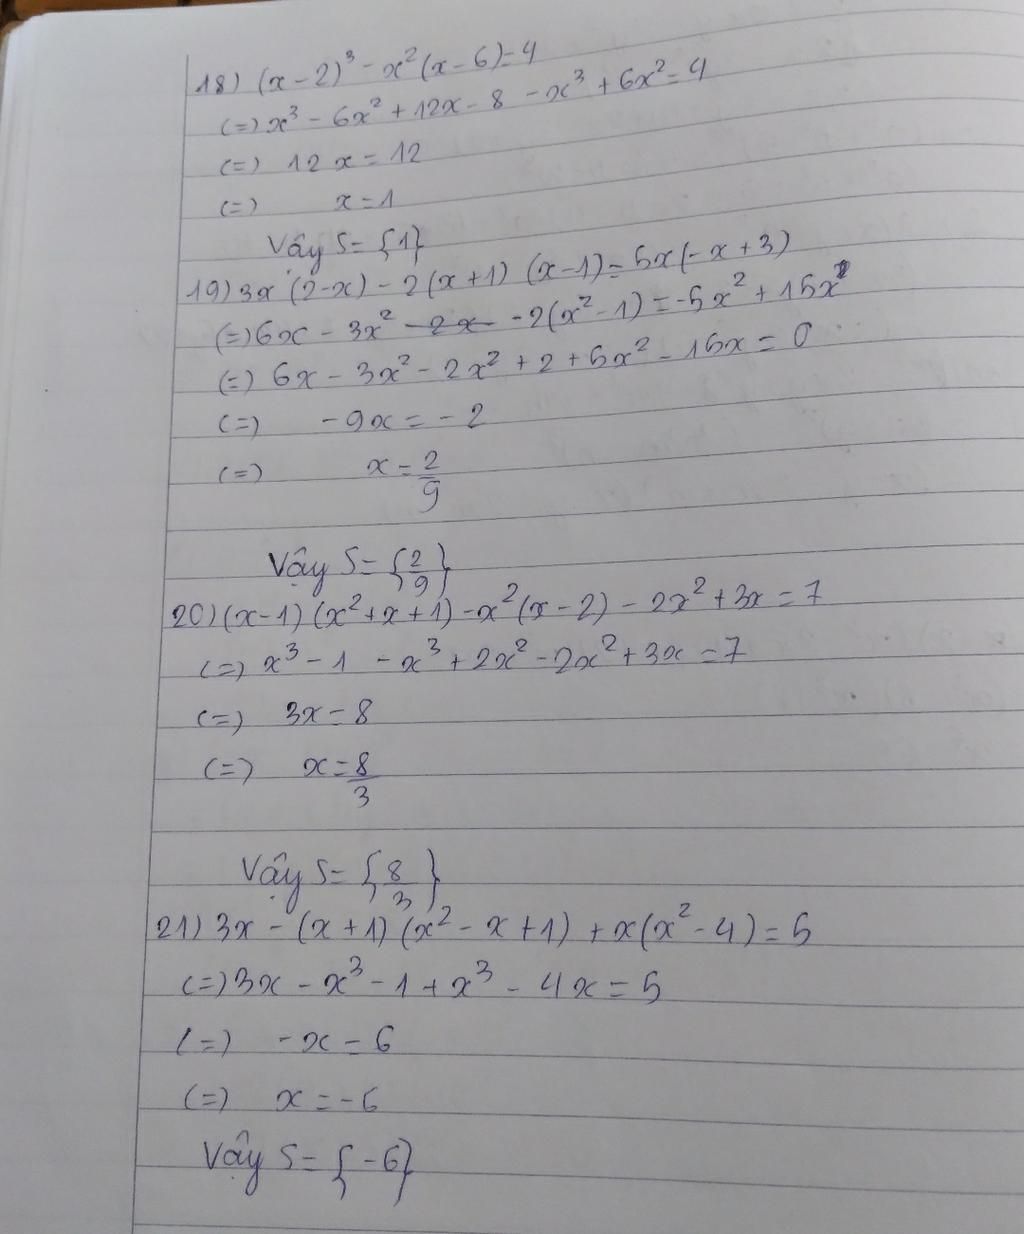 18) (x-2)³ - x²(x-6)=4
(=) x³ - 6x² + 12x - 8 - x³ + 6x² = 4
(=) 12x = 12
(=) x = 1
Vậy S = {1}
19) 3x(2-x) - 2(x+1)(x-1) = 5x(-x+3)
(=) 6x - 3x² - 2x - 2(x²-1) = -5x² + 15x
(=) 6x - 3x² - 2x² + 2 + 5x² - 15x = 0
(=) -9x = -2
(=) x = 2/9
Vậy S = {2/9}
20) (x-1)(x²+x+1) - x²(x-2) - 2x² + 3x = 7
(=) x³ - 1 - x³ + 2x² - 2x² + 3x = 7
(=) 3x = 8
(=) x = 8/3
Vậy S = {8/3}
21) 3x - (x+1)(x²-x+1) + x(x²-4) = 5
(=) 3x - x³ - 1 + x³ - 4x = 5
(=) -x = 6
(=) x = -6
Vậy S = {-6}